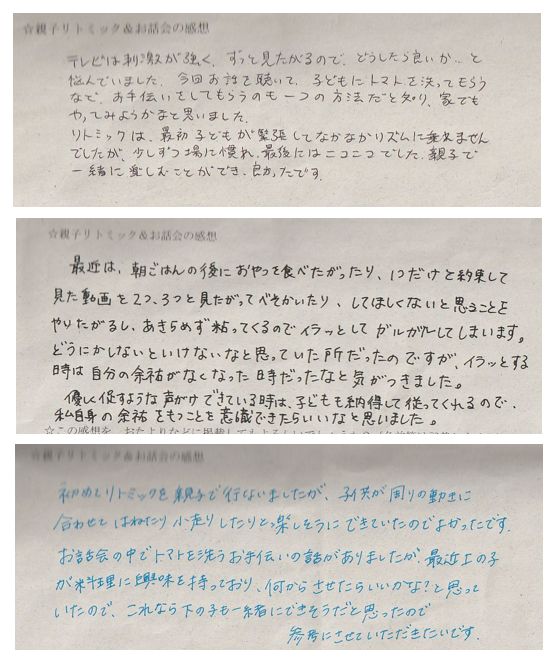 ☆親子リトミック&お話会の感想
テレビは刺激が強く、ずっと見たがるので、どうしたら良いか…と
悩んでいました。今回お話を聴いて、子どもにトマトを洗ってもらう
など、お手伝いをしてもらうのも一つの方法だと知り、家でも
やってみようかなと思いました。
リトミックは、最初子どもが緊張してなかなかリズムに乗れません
でしたが、少しずつ場に慣れ、最後にはニコニコでした。親子で
一緒に楽しむことができ、良かったです。
☆親子リトミック&お話会の感想
最近は、朝ごはんの後におやつを食べたがったり、1つだけと約束して
見た動画を2つ、3つと見たがってべそかいたり、してほしくないと思うことを
やりたがるし、あきらめず粘ってくるのでイラッとしてガルガルしてしまいます。
どうにかしないといけないなと思っていた所だったのですが、イラッとする
時は自分の余裕がなくなった時だったなと気がつきました。
優しく促すような声がけできている時は、子どもも納得して従ってくれるので、
私自身の余裕をもつことを意識できたらいいなと思いました。
☆この感想を、おたよりなどに掲載しても
☆親子リトミック&お話会の感想
初めてリトミックを親子で行ないましたが、子供が周りの動きに
合わせてはねたり小走りしたりと楽しそうにできていたのでよかったです。
お話会の中でトマトを洗うお手伝いの話がありましたが、最近上の子
が料理に興味を持っており、何からさせたらいいかな?と思って
いたので、これなら下の子も一緒にできそうだと思ったので
参考にさせていただきたいです。